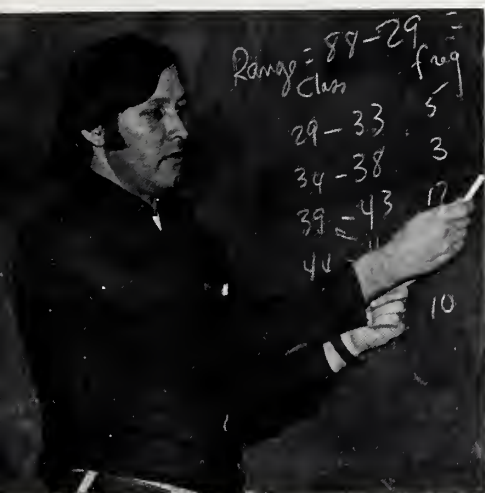 Range = 88-29 =
Class freq
29 - 33 5
34 - 38 3
39 - 43 12
44
10